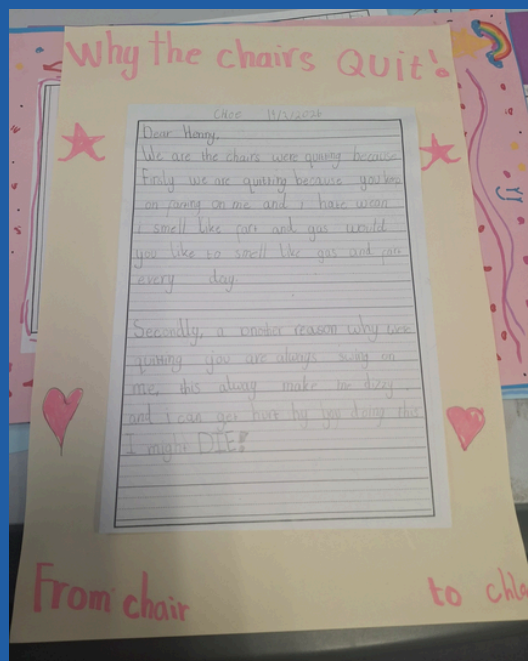 Why the chairs QUIT!
Chloe
Dear Henny,
We are the chairs were quitting because
Firstly we are quitting because you keep
on farting on me and I have
I smell like fart and gas would
you like to smell like gas and fart
every day.
Secondly, a another reason why were
quitting you are always swing on
me, this alway make me dizzy
and I can get hurt by you doing this
I might DIE!
From chair
to chlo